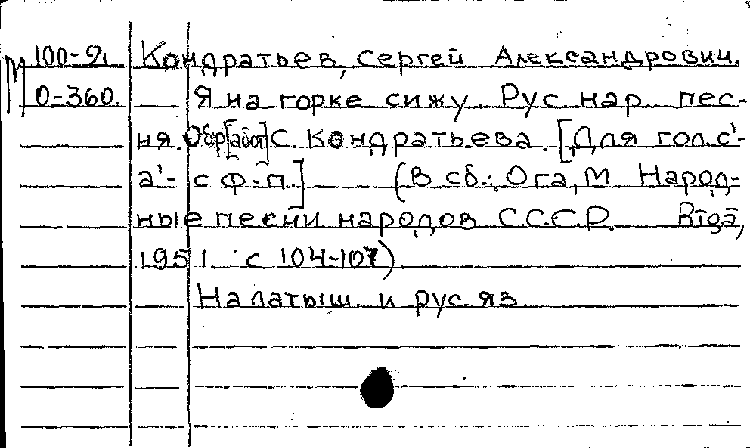 М 100-Я. Кондратьев, Сергей Александрович.
0-360. Я на горке сижу. Рус нар. пес-
ня. Обр[абот] С. Кондратьева. [Для гол. c¹-
a¹- с ф-п.] (В сб.: Ога, М Народ-
ные песни народов С.С.С.Р. Rīgā,
1951 с 104-107)
На латыш и рус яз